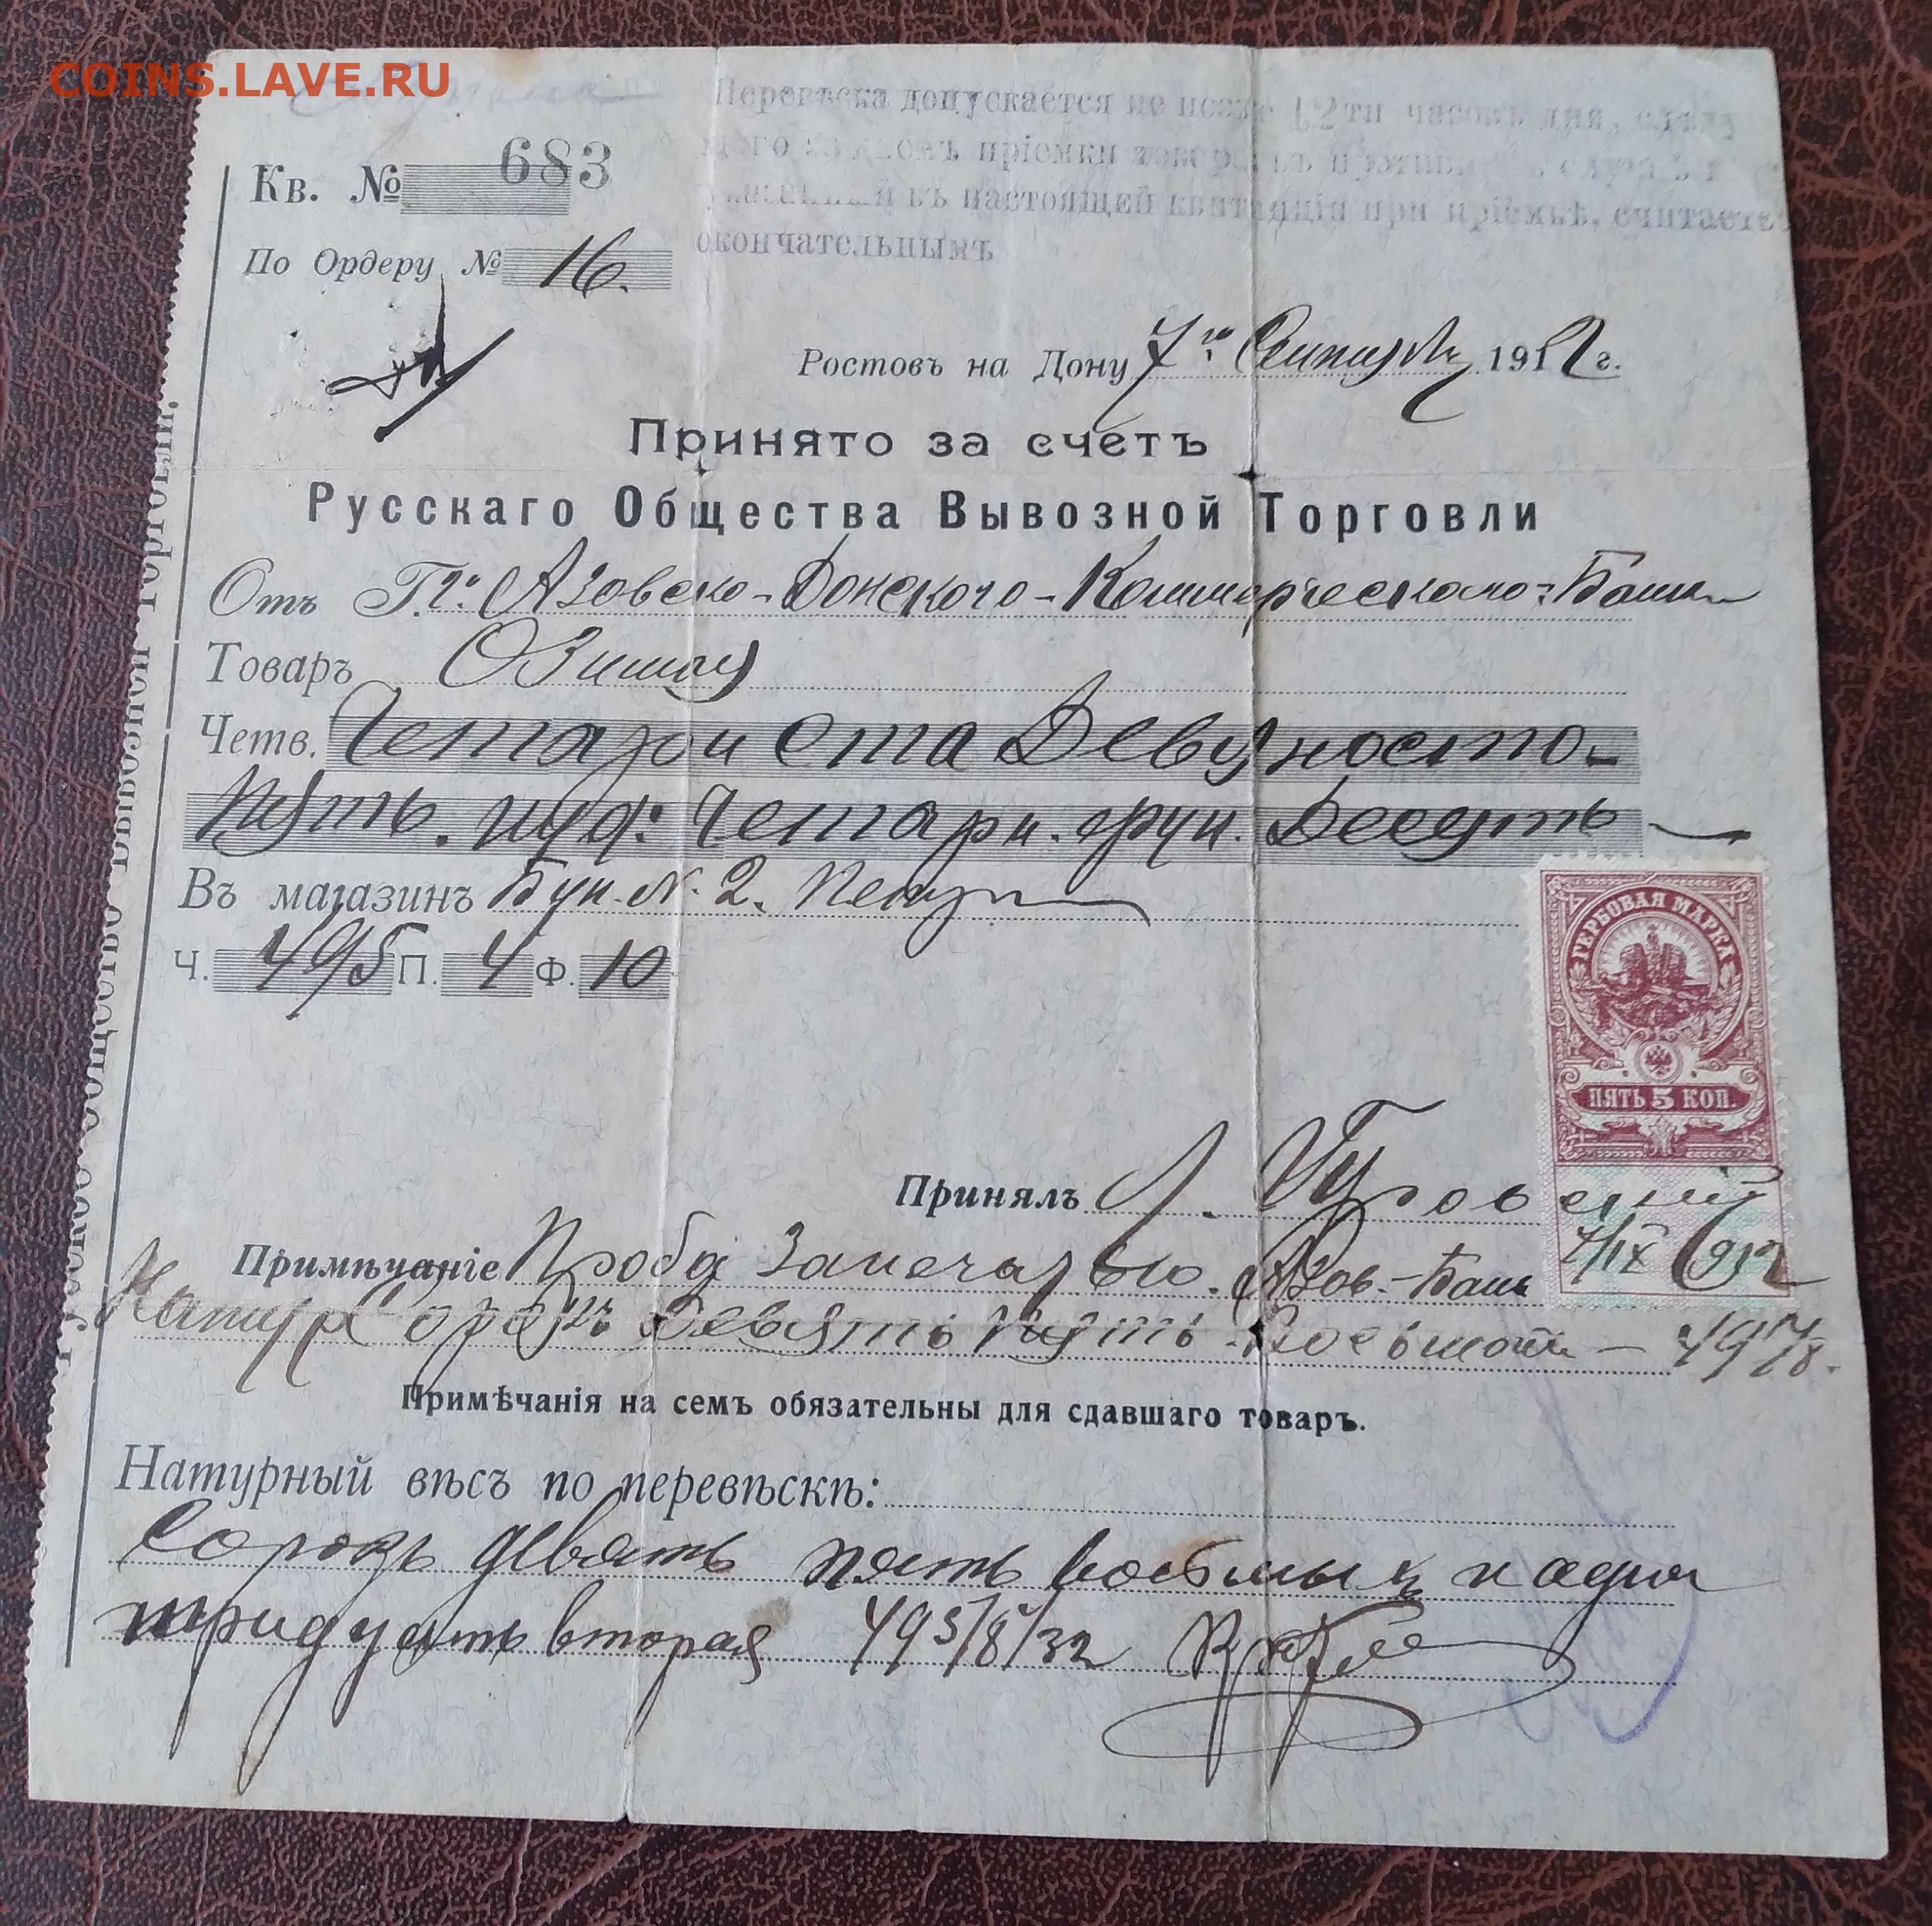 COINS.LAVE.RU
Перевѣска допускается не позже 12 ти часовъ дня,
пріемки
въ настоящей квитанціи при пріемкѣ, считается
окончательнымъ
Кв. № 683
По Ордеру № 16.
Ростовъ на Дону 7го 1912 г.
Принято за счетъ
Русскаго Общества Вывозной Торговли
Отъ Азовско-Донского-Коммерческого Банка
Товаръ Озимая
Четв. Четари ста Девяносто-
Пять. пуд: Четари. фун. Десять
Въ магазинъ Бун. N. 2.
Ч. 495 П. 4 Ф. 10
ГЕРБОВАЯ МАРКА
ПЯТЬ 5 КОП.
Принялъ Л. Гуровский
7/IX 1912
Примѣчаніе Проба Запечат Азов-Банк
Натура Сорокъ Девять Пять Восьмой — 49
Примѣчанія на семъ обязательны для сдавшаго товаръ.
Натурный вѣсъ по перевѣскѣ:
Сорокъ девять пять восьмыхъ и одна
тридцать вторая 49 5/8 1/32
Русское Общество Вывозной Торговли.